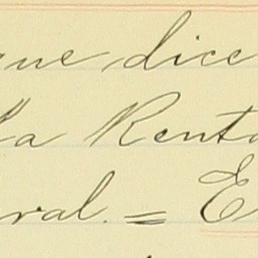 que dice
la Renta
ral. = E